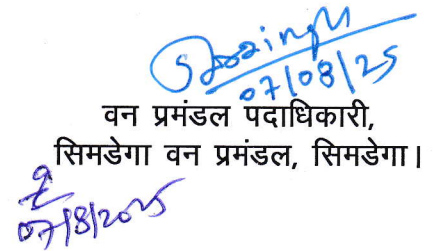 07/08/25
वन प्रमंडल पदाधिकारी,
सिमडेगा वन प्रमंडल, सिमडेगा।
07/8/2025